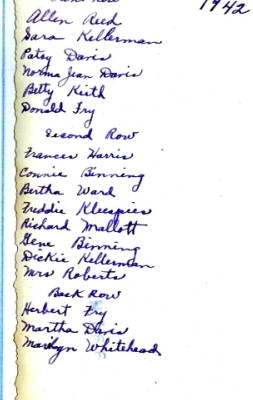 1942
Row
Allen Reed
Sara Kellerman
Patsy Davis
Norma Jean Davis
Betty Keith
Donald Fry
Second Row
Frances Harris
Connie Binning
Bertha Ward
Freddie Kleespies
Richard Mallott
Gene Binning
Dickie Kellerman
Mrs Roberts
Back Row
Herbert Fry
Martha Davis
Marilyn Whitehead